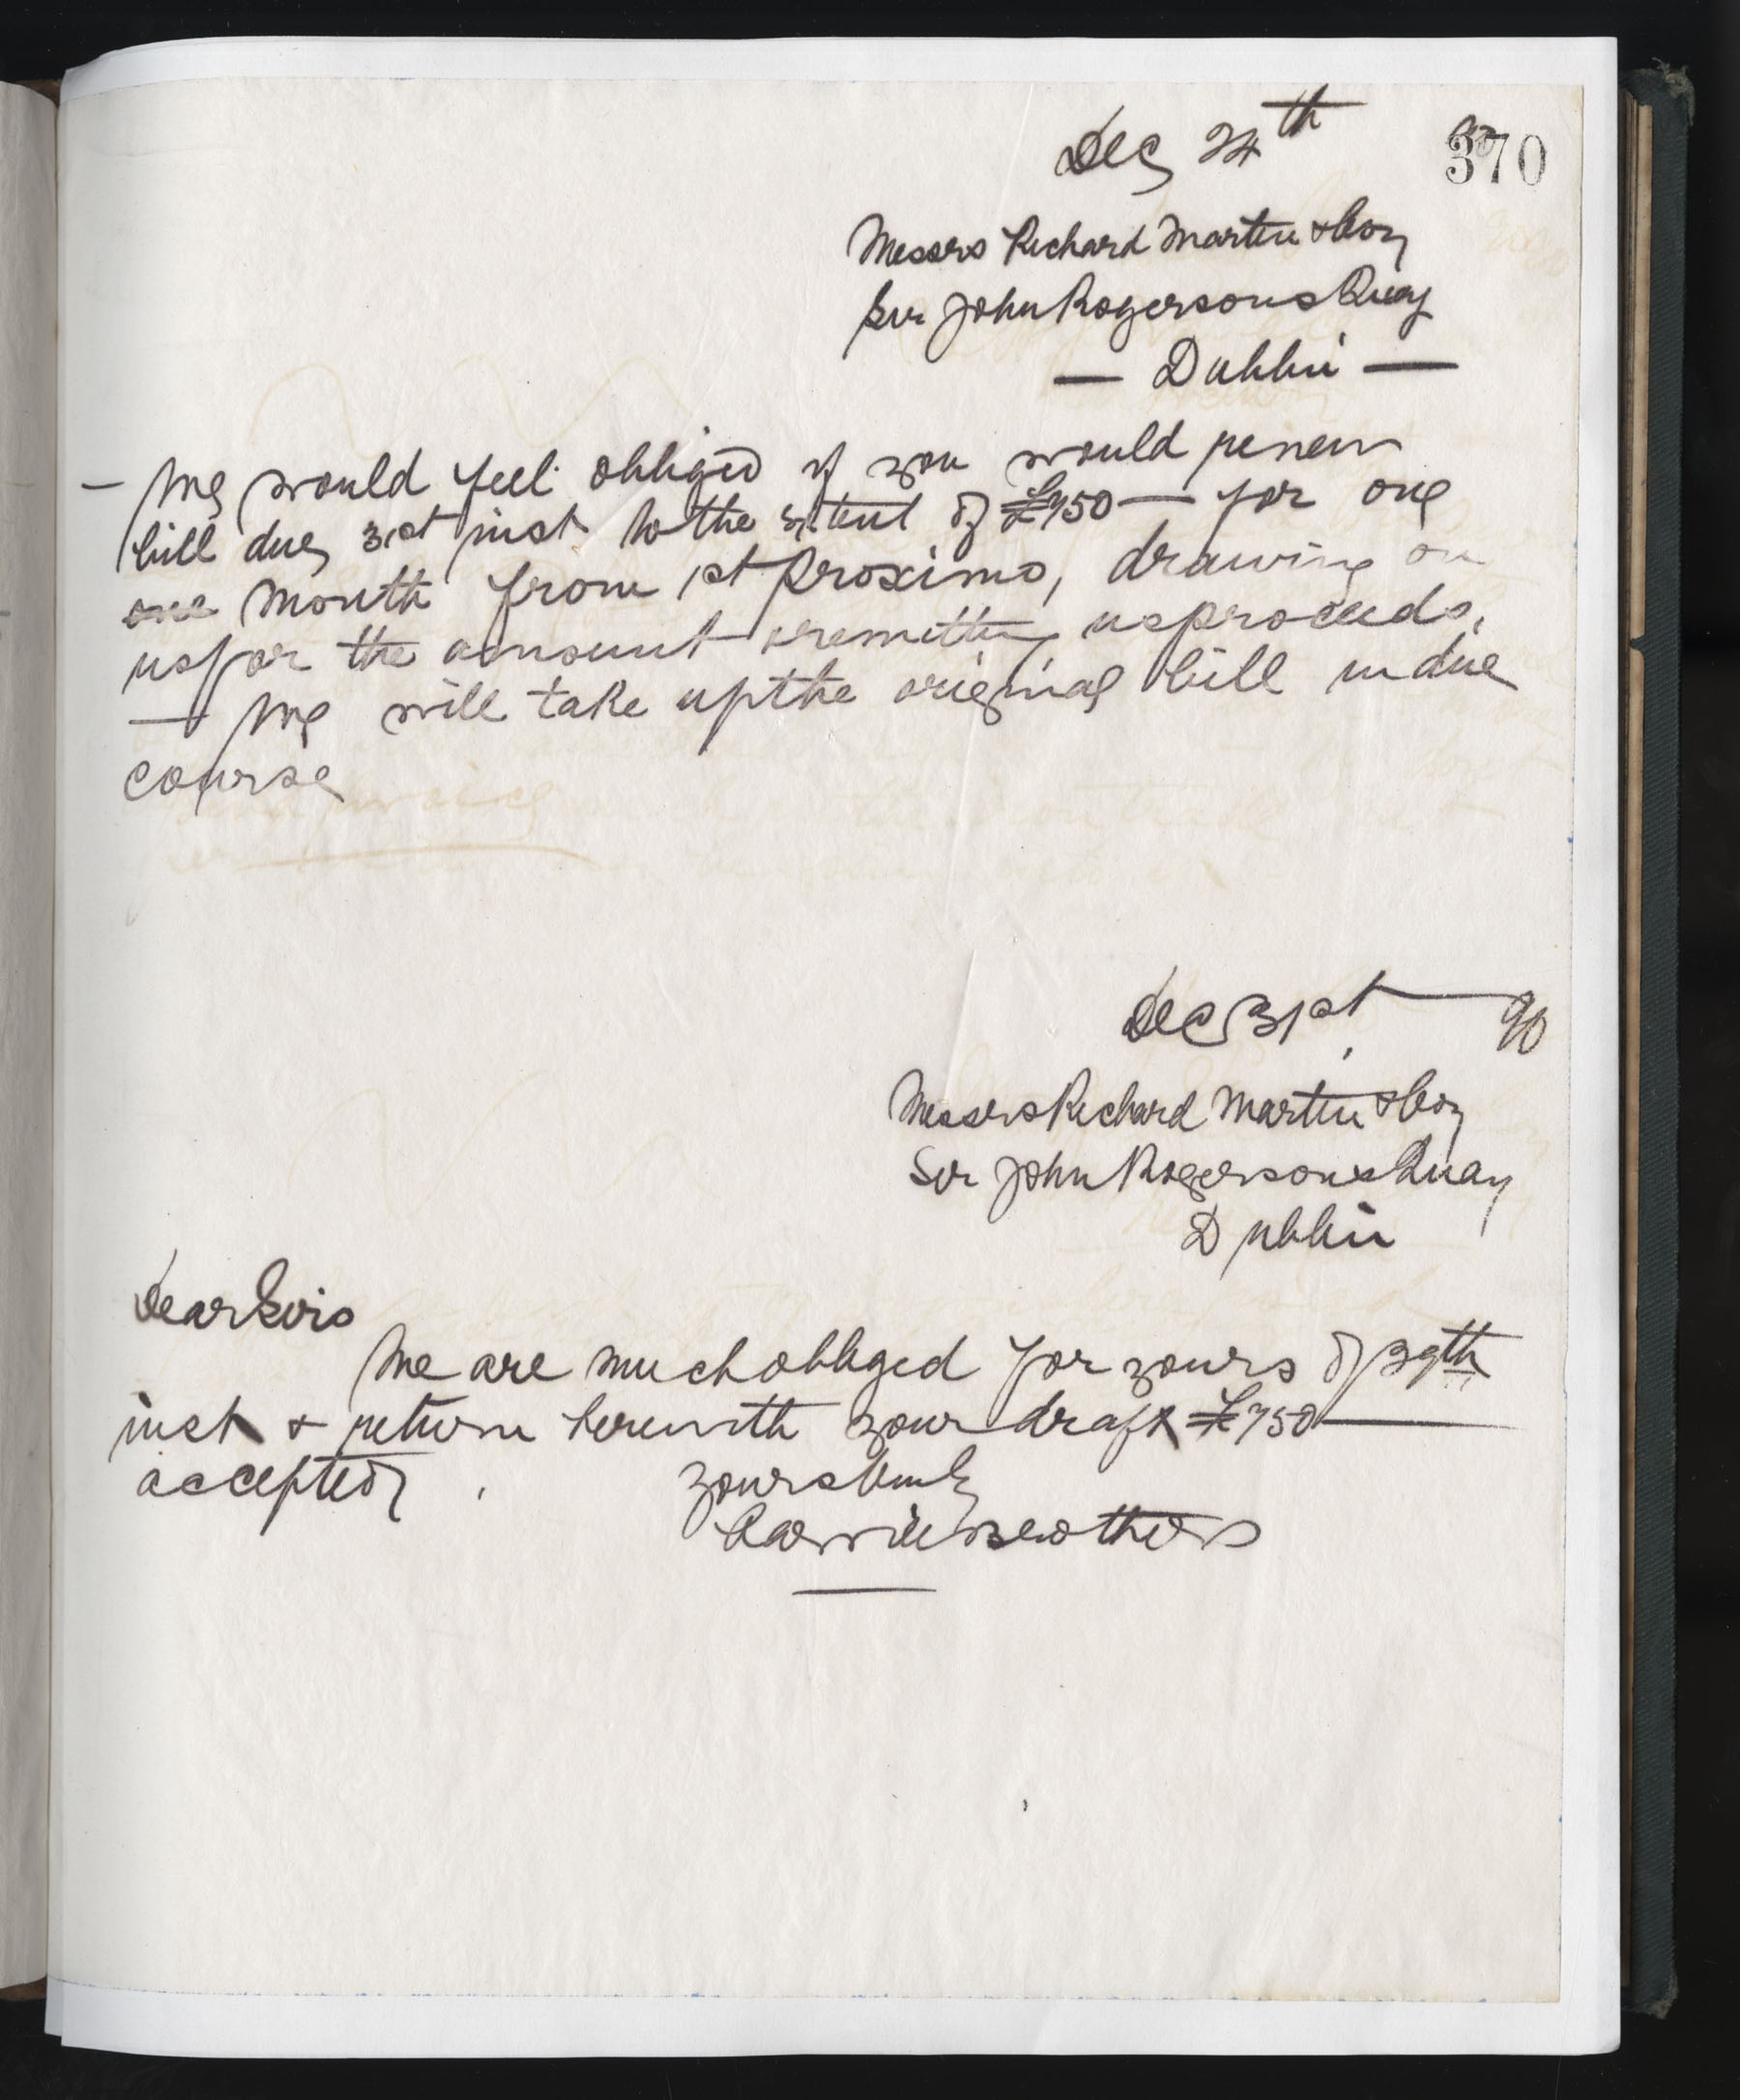 Dec 24th 90
370
Messrs Richard Martin & Coy
Sir John Rogersons Quay
— Dublin —
— We would feel obliged if you would renew
bill due 31st inst to the extent of £750 — for one
one month from 1st proximo, drawing on
us for the amount & remitting us proceeds.
— We will take up the original bill in due
course
Dec 31st 90
Messrs Richard Martin & Coy
Sir John Rogersons Quay
Dublin
Dear Sirs
We are much obliged for yours of 29th
inst & return herewith your draft £750
accepted.
Yours truly
Brothers